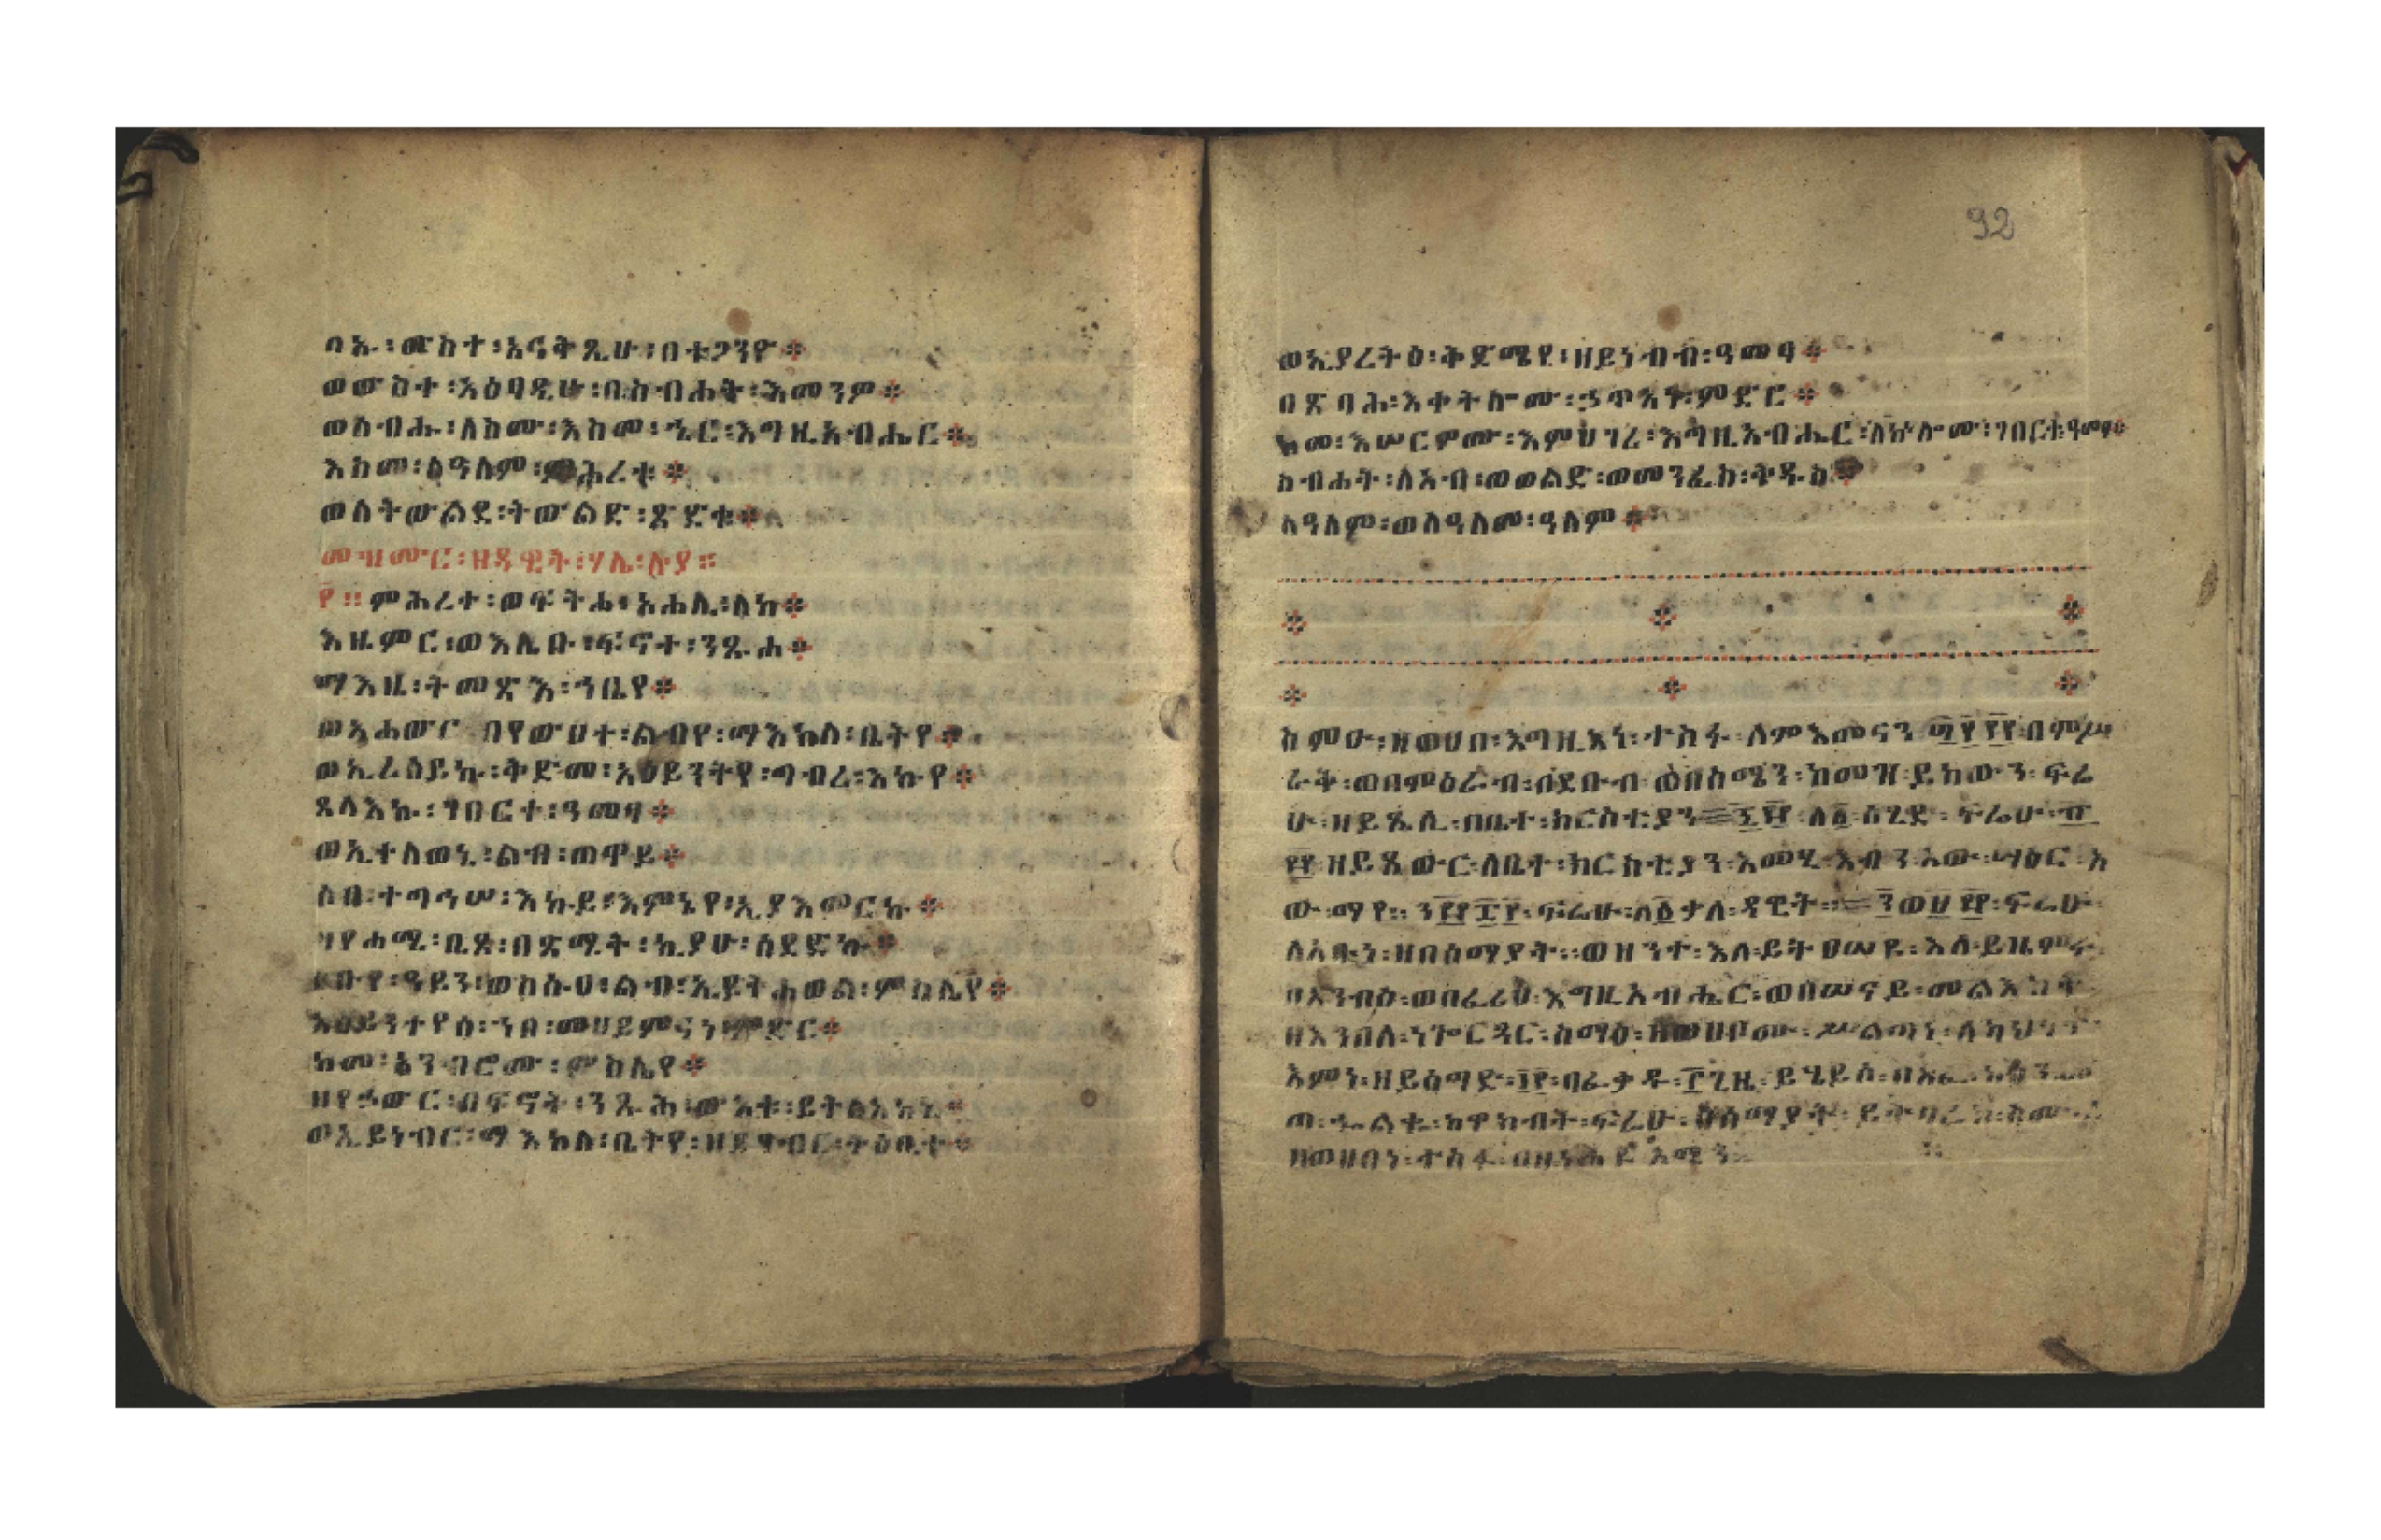 ባኡ፡ውስተ፡አናቅጺሁ፡በተጋንዮ፨
ወውስተ፡አዕፃዲሁ፡በስብሐት፡እመንዎ፨
ወሰብሑ፡ለስሙ፡እስመ፡ኄር፡እግዚአብሔር፨
እስመ፡ለዓለም፡ምሕረቱ፨
ወለትውልደ፡ትውልድ፡ጽድቁ፨
መዝሙር፡ዘዳዊት፡ሃሌ፡ሉያ።
፻። ምሕረተ፡ወፍትሐ፡አሐሊ፡ለከ፨
እዜምር፡ወእሌቡ፡ፍኖተ፡ንጹሐ፨
ማእዜ፡ትመጽእ፡ኀቤየ፨
ወአሐውር በየውሀተ፡ልብየ፡ማእከለ፡ቤትየ፨
ወኢረሰይኩ፡ቅድመ፡አዕይንትየ፡ግብረ፡እኩየ፨
ጸላእኩ፡ገበርተ፡ዓመፃ፨
ወኢተለወኒ፡ልብ፡ጠዋይ፨
ሶበ፡ተግኅሠ፡እኩይ፡እምኔየ፡ኢያእመርኩ፨
ዘየሐሚ፡ቢጾ፡በጽሚት፡ኪያሁ፡ሰደድኩ፨
ዕቡየ፡ዓይን፡ወስሱዐ፡ልብ፡ኢይትሐወል፡ምስሌየ፨
አዕይንትየሰ፡ኀበ፡መሀይምናነ፡ምድር፨
ከመ፡አንብሮሙ፡ምስሌየ፨
ዘየሐውር፡በፍኖት፡ንጹሕ፡ውእቱ፡ይትለአከኒ፨
ወኢይነብር፡ማእከለ፡ቤትየ፡ዘይገብር፡ትዕቢተ፨
92
ወኢያረትዕ፡ቅድሜየ፡ዘይነብብ፡ዓመፃ፨
በጽባሕ፡እቀትሎሙ፡ኃጥአነ፡ምድር፨
ከመ፡እሠርዎሙ፡እምሀገረ፡እግዚአብሔር፡ለኵሎሙ፡ገበርተ፡ዓመፃ፨
ስብሐት፡ለአብ፡ወወልድ፡ወመንፈስ፡ቅዱስ፨
ለዓለም፡ወለዓለመ፡ዓለም፨
ስምሁ፡ዘወሀበ፡እግዚእነ፡ተስፋ ለምእመናን በምሥ
ራቅ፡ወበምዕራብ፡በደቡብ ወበሰሜን፡ከመዝ፡ይከውን፡ፍሬ
ሁ፡ዘይጼሊ፡በቤተ፡ክርስቲያን ስጊድ፡ፍሬሁ
ዘይጸውር፡ለቤተ፡ክርስቲያን አመሂ አብን አው ሣዕር አ
ው ማየ። ፍሬሁ ቃለ፡ዳዊት። ፍሬሁ
በሰማያት። ወዝንተ፡እለ፡ይትዐሠዩ፡እለ፡ይዜምሩ
እግዚአብሔር፡ወበሠናይ፡መልእክት
ሥልጣነ፡ለካህናት
እምነ፡ዘይሰግድ ጊዜ፡ይኄይስ
ፍሬሁ በሰማያት፡ይትባረክ፡ስሙ
ዘወሀበነ፡ተስፋ አሜን።